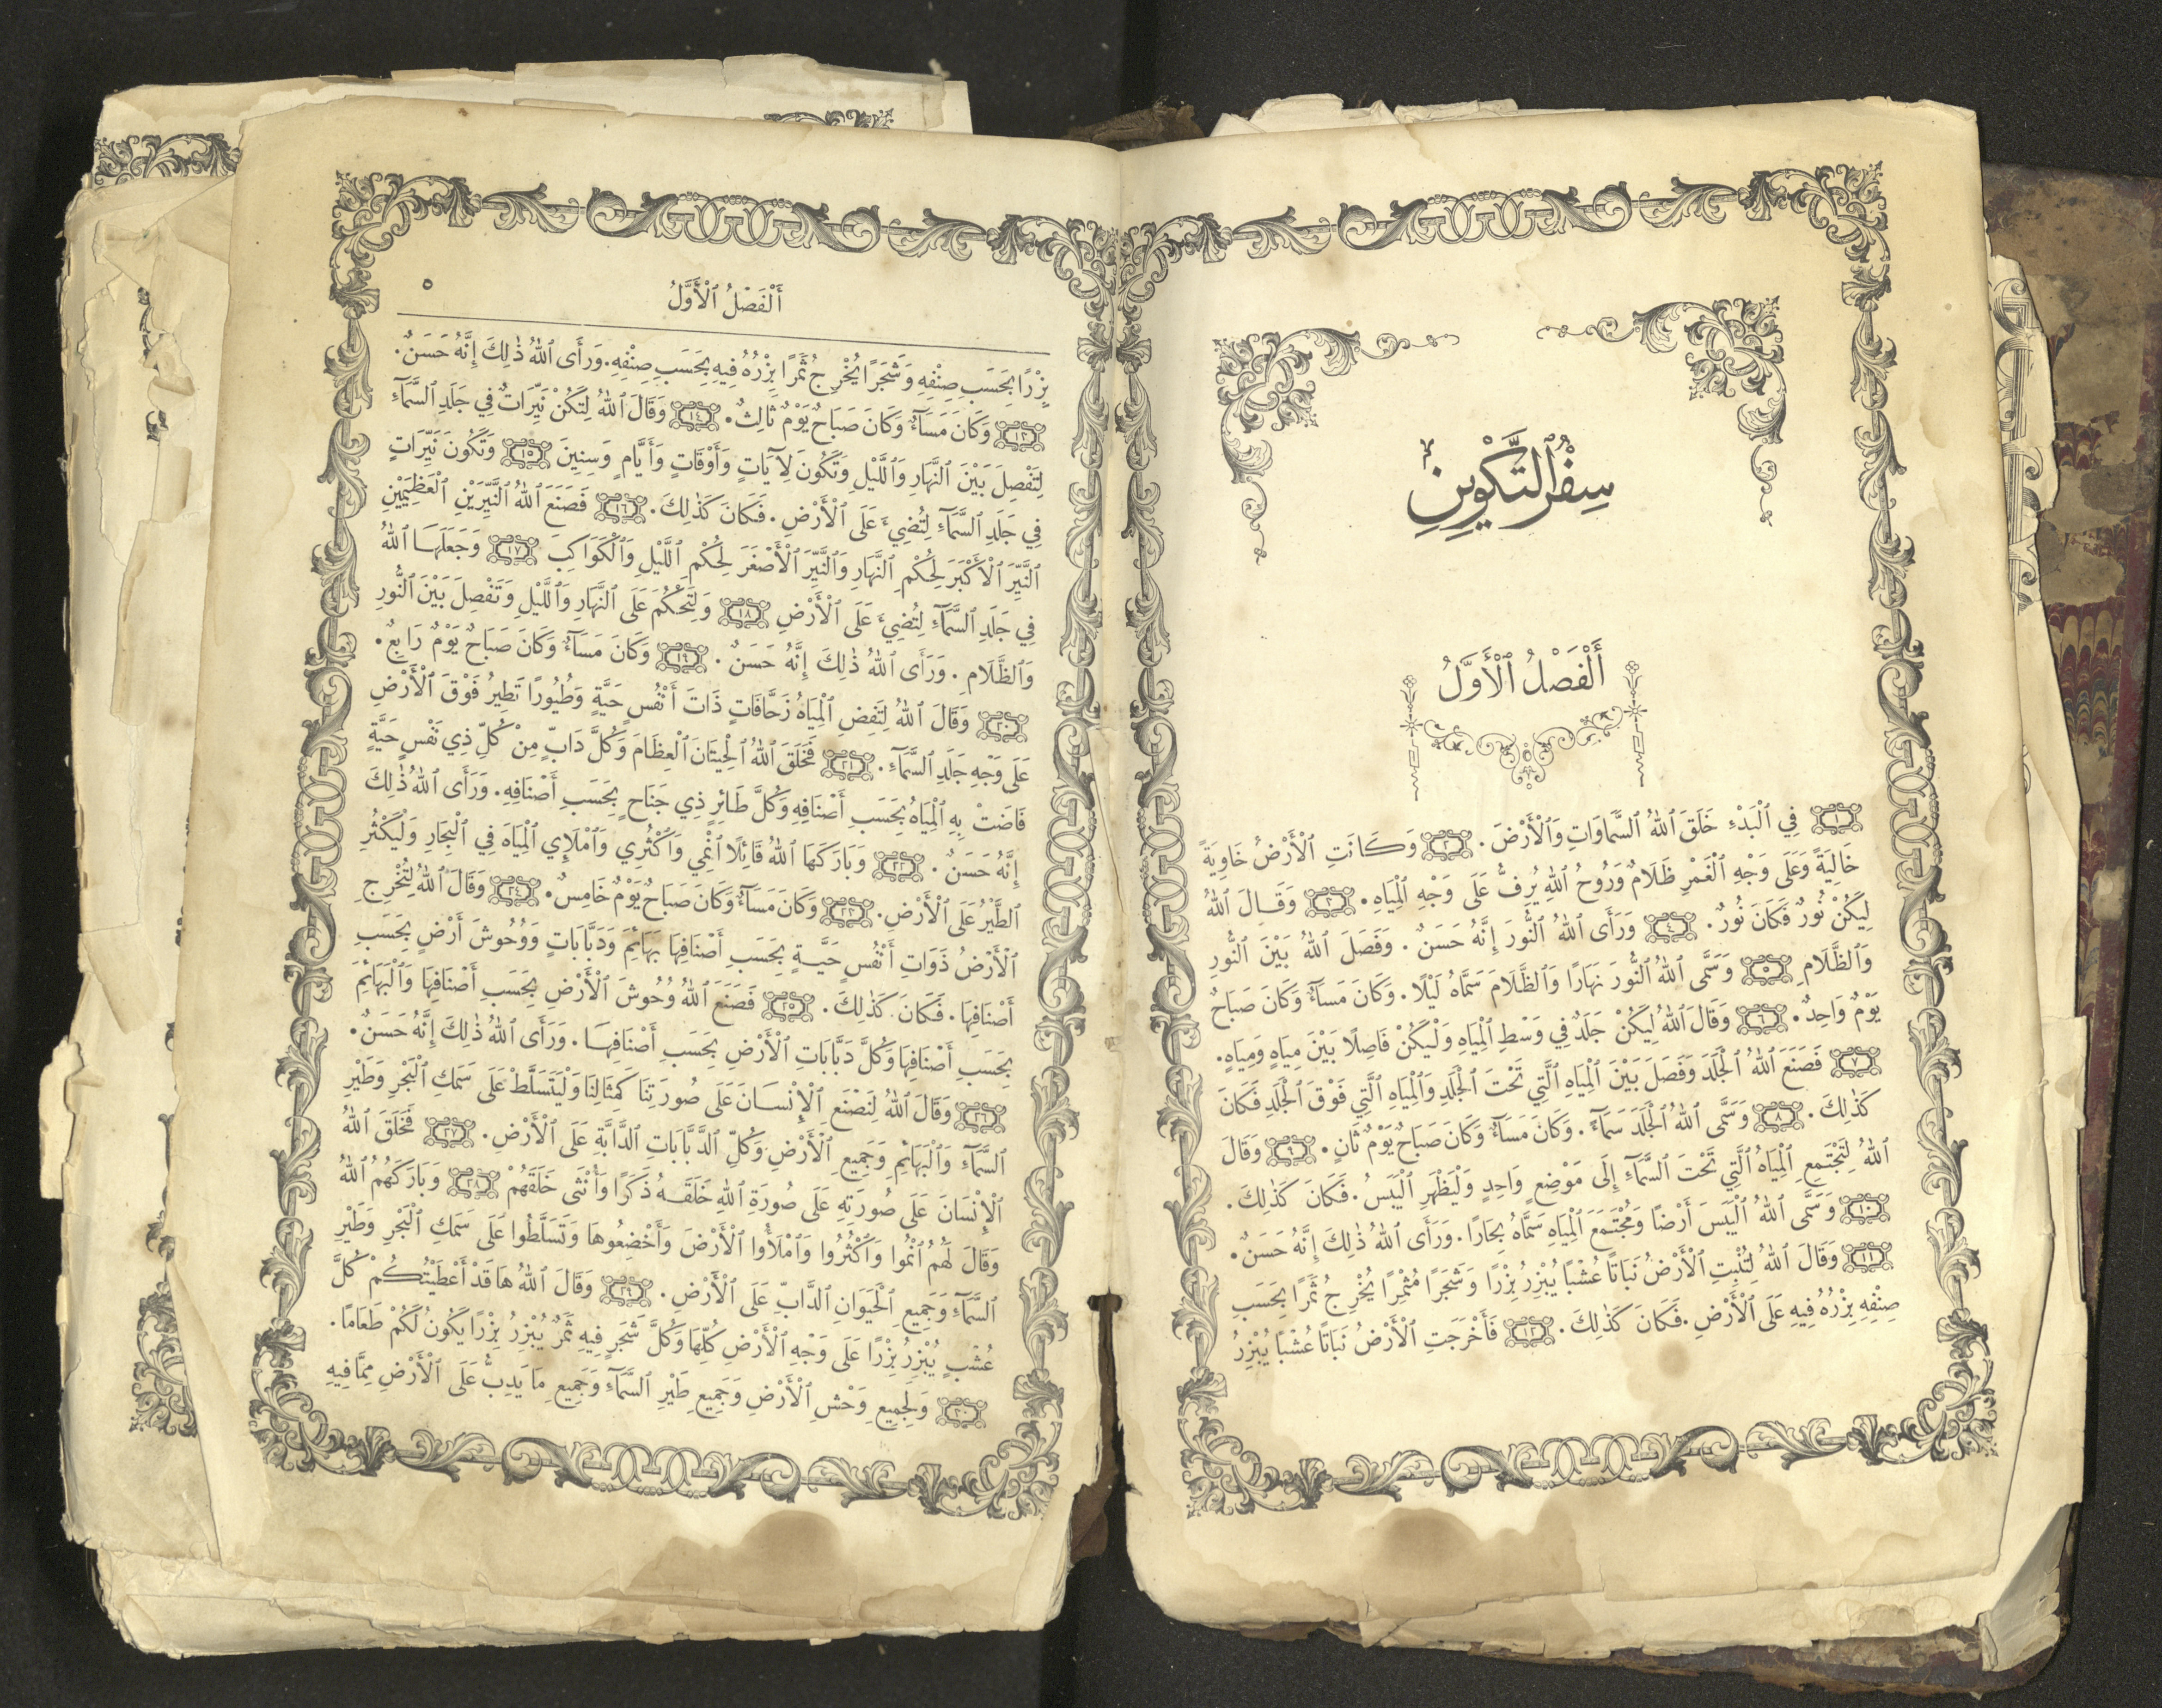 سِفْرُ ٱلتَّكْوِينِ
أَلْفَصْلُ ٱلْأَوَّلُ
١ فِي ٱلْبَدْءِ خَلَقَ ٱللهُ ٱلسَّمَاوَاتِ وَٱلْأَرْضَ. ٢ وَكَانَتِ ٱلْأَرْضُ خَاوِيَةً
خَالِيَةً وَعَلَى وَجْهِ ٱلْغَمْرِ ظَلَامٌ وَرُوحُ ٱللهِ يُرِفُّ عَلَى وَجْهِ ٱلْمِيَاهِ. ٣ وَقَالَ ٱللهُ
لِيَكُنْ نُورٌ فَكَانَ نُورٌ. ٤ وَرَأَى ٱللهُ ٱلنُّورَ إِنَّهُ حَسَنٌ. وَفَصَلَ ٱللهُ بَيْنَ ٱلنُّورِ
وَٱلظَّلَامِ ٥ وَسَمَّى ٱللهُ ٱلنُّورَ نَهَارًا وَٱلظَّلَامَ سَمَّاهُ لَيْلًا. وَكَانَ مَسَآءٌ وَكَانَ صَبَاحٌ
يَوْمٌ وَاحِدٌ. ٦ وَقَالَ ٱللهُ لِيَكُنْ جَلَدٌ فِي وَسْطِ ٱلْمِيَاهِ وَلْيَكُنْ فَاصِلًا بَيْنَ مِيَاهٍ وَمِيَاهٍ.
٧ فَصَنَعَ ٱللهُ ٱلْجَلَدَ وَفَصَلَ بَيْنَ ٱلْمِيَاهِ ٱلَّتِي تَحْتَ ٱلْجَلَدِ وَٱلْمِيَاهِ ٱلَّتِي فَوْقَ ٱلْجَلَدِ فَكَانَ
كَذٰلِكَ. ٨ وَسَمَّى ٱللهُ ٱلْجَلَدَ سَمَآءً. وَكَانَ مَسَآءٌ وَكَانَ صَبَاحٌ يَوْمٌ ثَانٍ. ٩ وَقَالَ
ٱللهُ لِتَجْتَمِعِ ٱلْمِيَاهُ ٱلَّتِي تَحْتَ ٱلسَّمَآءِ إِلَى مَوْضِعٍ وَاحِدٍ وَلْيَظْهَرِ ٱلْيَبَسُ. فَكَانَ كَذٰلِكَ.
١٠ وَسَمَّى ٱللهُ ٱلْيَبَسَ أَرْضًا وَمُجْتَمَعَ ٱلْمِيَاهِ سَمَّاهُ بِحَارًا. وَرَأَى ٱللهُ ذٰلِكَ إِنَّهُ حَسَنٌ.
١١ وَقَالَ ٱللهُ لِتُنْبِتِ ٱلْأَرْضُ نَبَاتًا عُشْبًا يُبْزِرُ بِزْرًا وَشَجَرًا مُثْمِرًا يُخْرِجُ ثَمَرًا بِحَسَبِ
صِنْفِهِ بِزْرُهُ فِيهِ عَلَى ٱلْأَرْضِ. فَكَانَ كَذٰلِكَ. ١٢ فَأَخْرَجَتِ ٱلْأَرْضُ نَبَاتًا عُشْبًا يُبْزِرُ
أَلْفَصْلُ ٱلْأَوَّلُ ٥
بِزْرًا بِحَسَبِ صِنْفِهِ وَشَجَرًا يُخْرِجُ ثَمَرًا بِزْرُهُ فِيهِ بِحَسَبِ صِنْفِهِ. وَرَأَى ٱللهُ ذٰلِكَ إِنَّهُ حَسَنٌ.
١٣ وَكَانَ مَسَآءٌ وَكَانَ صَبَاحٌ يَوْمٌ ثَالِثٌ. ١٤ وَقَالَ ٱللهُ لِتَكُنْ نَيِّرَاتٌ فِي جَلَدِ ٱلسَّمَآءِ
لِتَفْصِلَ بَيْنَ ٱلنَّهَارِ وَٱللَّيْلِ وَتَكُونَ لِآيَاتٍ وَأَوْقَاتٍ وَأَيَّامٍ وَسِنِينَ ١٥ وَتَكُونَ نَيِّرَاتٍ
فِي جَلَدِ ٱلسَّمَآءِ لِتُضِيءَ عَلَى ٱلْأَرْضِ. فَكَانَ كَذٰلِكَ. ١٦ فَصَنَعَ ٱللهُ ٱلنَّيِّرَيْنِ ٱلْعَظِيمَيْنِ
ٱلنَّيِّرَ ٱلْأَكْبَرَ لِحُكْمِ ٱلنَّهَارِ وَٱلنَّيِّرَ ٱلْأَصْغَرَ لِحُكْمِ ٱللَّيْلِ وَٱلْكَوَاكِبَ ١٧ وَجَعَلَهَا ٱللهُ
فِي جَلَدِ ٱلسَّمَآءِ لِتُضِيءَ عَلَى ٱلْأَرْضِ ١٨ وَلِتَحْكُمَ عَلَى ٱلنَّهَارِ وَٱللَّيْلِ وَتَفْصِلَ بَيْنَ ٱلنُّورِ
وَٱلظَّلَامِ. وَرَأَى ٱللهُ ذٰلِكَ إِنَّهُ حَسَنٌ. ١٩ وَكَانَ مَسَآءٌ وَكَانَ صَبَاحٌ يَوْمٌ رَابِعٌ.
٢٠ وَقَالَ ٱللهُ لِتَفِضِ ٱلْمِيَاهُ زَحَّافَاتٍ ذَاتَ أَنْفُسٍ حَيَّةٍ وَطُيُورًا تَطِيرُ فَوْقَ ٱلْأَرْضِ
عَلَى وَجْهِ جَلَدِ ٱلسَّمَآءِ. ٢١ فَخَلَقَ ٱللهُ ٱلْحِيتَانَ ٱلْعِظَامَ وَكُلَّ دَابٍّ مِنْ كُلِّ ذِي نَفْسٍ حَيَّةٍ
فَاضَتْ بِهِ ٱلْمِيَاهُ بِحَسَبِ أَصْنَافِهِ وَكُلَّ طَائِرٍ ذِي جَنَاحٍ بِحَسَبِ أَصْنَافِهِ. وَرَأَى ٱللهُ ذٰلِكَ
إِنَّهُ حَسَنٌ. ٢٢ وَبَارَكَهَا ٱللهُ قَائِلًا ٱنْمِي وَٱكْثُرِي وَٱمْلَإِي ٱلْمِيَاهَ فِي ٱلْبِحَارِ وَلْيَكْثُرِ
ٱلطَّيْرُ عَلَى ٱلْأَرْضِ. ٢٣ وَكَانَ مَسَآءٌ وَكَانَ صَبَاحٌ يَوْمٌ خَامِسٌ. ٢٤ وَقَالَ ٱللهُ لِتُخْرِجِ
ٱلْأَرْضُ ذَوَاتِ أَنْفُسٍ حَيَّةٍ بِحَسَبِ أَصْنَافِهَا بَهَائِمَ وَدَبَّابَاتٍ وَوُحُوشَ أَرْضٍ بِحَسَبِ
أَصْنَافِهَا. فَكَانَ كَذٰلِكَ. ٢٥ فَصَنَعَ ٱللهُ وُحُوشَ ٱلْأَرْضِ بِحَسَبِ أَصْنَافِهَا وَٱلْبَهَائِمَ
بِحَسَبِ أَصْنَافِهَا وَكُلَّ دَبَّابَاتِ ٱلْأَرْضِ بِحَسَبِ أَصْنَافِهَا. وَرَأَى ٱللهُ ذٰلِكَ إِنَّهُ حَسَنٌ.
٢٦ وَقَالَ ٱللهُ لِنَصْنَعِ ٱلْإِنْسَانَ عَلَى صُورَتِنَا كَمِثَالِنَا وَلْيَتَسَلَّطْ عَلَى سَمَكِ ٱلْبَحْرِ وَطَيْرِ
ٱلسَّمَآءِ وَٱلْبَهَائِمِ وَجَمِيعِ ٱلْأَرْضِ وَكُلِّ ٱلدَّبَّابَاتِ ٱلدَّابَّةِ عَلَى ٱلْأَرْضِ. ٢٧ فَخَلَقَ ٱللهُ
ٱلْإِنْسَانَ عَلَى صُورَتِهِ عَلَى صُورَةِ ٱللهِ خَلَقَهُ ذَكَرًا وَأُنْثَى خَلَقَهُمْ ٢٨ وَبَارَكَهُمُ ٱللهُ
وَقَالَ لَهُمُ ٱنْمُوا وَٱكْثُرُوا وَٱمْلَأُوا ٱلْأَرْضَ وَأَخْضِعُوهَا وَتَسَلَّطُوا عَلَى سَمَكِ ٱلْبَحْرِ وَطَيْرِ
ٱلسَّمَآءِ وَجَمِيعِ ٱلْحَيَوَانِ ٱلدَّابِّ عَلَى ٱلْأَرْضِ. ٢٩ وَقَالَ ٱللهُ هَا قَدْ أَعْطَيْتُكُمْ كُلَّ
عُشْبٍ يُبْزِرُ بِزْرًا عَلَى وَجْهِ ٱلْأَرْضِ كُلِّهَا وَكُلَّ شَجَرٍ فِيهِ ثَمَرٌ يُبْزِرُ بِزْرًا يَكُونُ لَكُمْ طَعَامًا.
٣٠ وَلِجَمِيعِ وَحْشِ ٱلْأَرْضِ وَجَمِيعِ طَيْرِ ٱلسَّمَآءِ وَجَمِيعِ مَا يَدِبُّ عَلَى ٱلْأَرْضِ مِمَّا فِيهِ